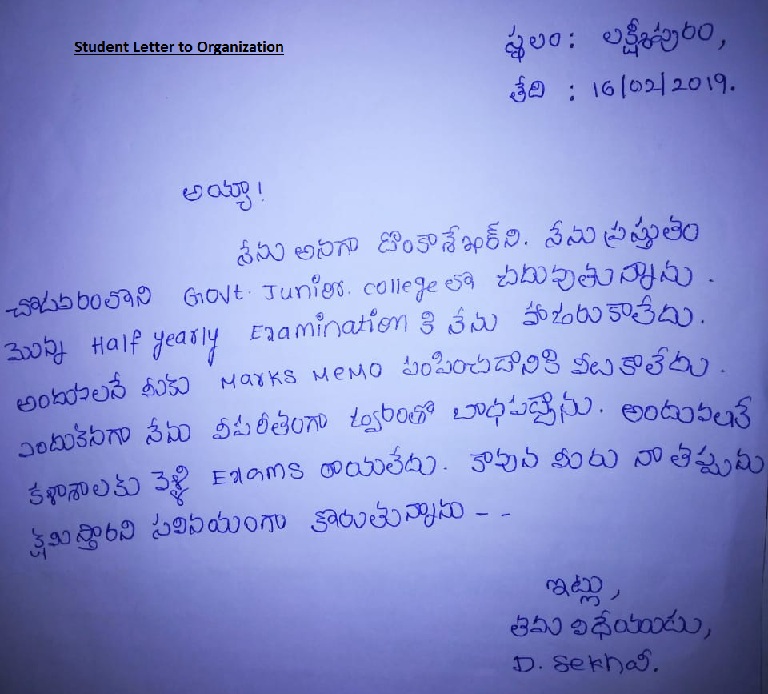 Student Letter to Organization
స్థలం : లక్ష్మీపురం,
తేది : 16/02/2019.
అయ్యా!
నేను అనగా దొంకాశేఖర్‌ని. నేను ప్రస్తుతం
చోడవరంలోని Govt. Junior. college లో చదువుతున్నాను.
మొన్న Half yearly Examination కి నేను హాజరుకాలేదు.
అందువలనే మీకు Marks Memo పంపించడానికి వీలుకాలేదు.
ఎందుకనగా నేను విపరీతంగా జ్వరంతో బాధపడ్డాను. అందువలనే
కళాశాలకు వెళ్ళి Exams రాయలేదు. కావున మీరు నా తప్పును
క్షమిస్తారని సవినయంగా కోరుతున్నాను - -
ఇట్లు,
తమ విధేయుడు,
D. Sekhar.